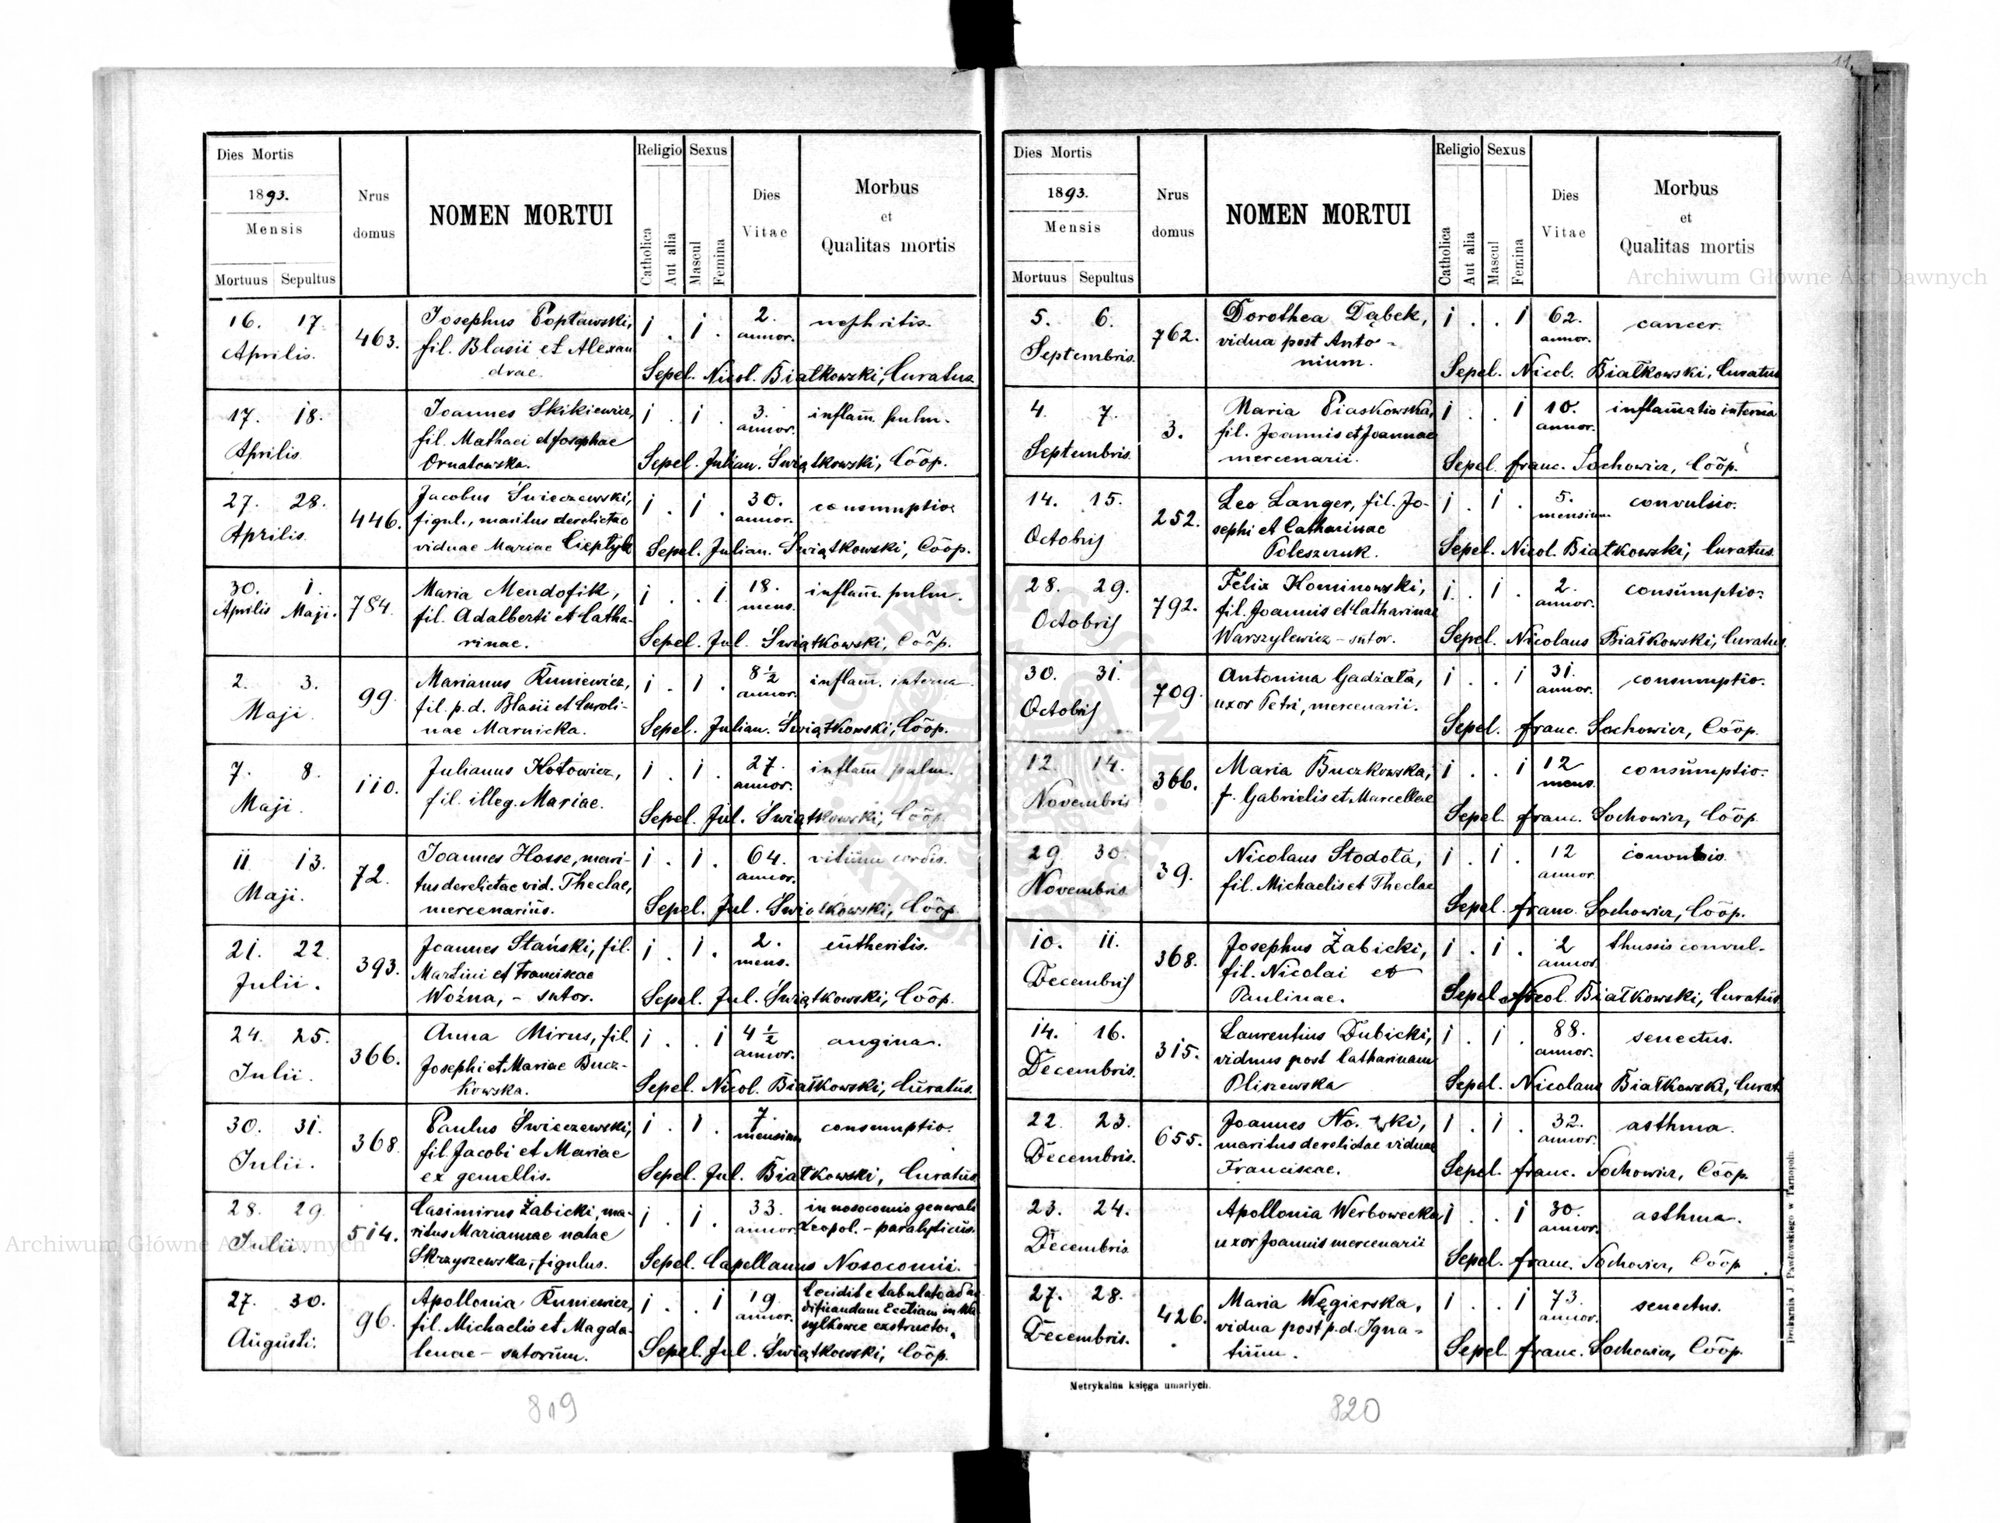 11.
Dies Mortis
1893.
Mensis
Mortuus Sepultus
Nrus
domus
NOMEN MORTUI
Religio
Catholica
Aut alia
Sexus
Mascul
Femina
Dies
Vitae
Morbus
et
Qualitas mortis
16. 17.
Aprilis.
463.
Josephus Popławski,
fil. Blasii et Alexan
drae.
1 . 1 .
2.
annor.
nephritis.
Sepel. Nicol. Białkowski, Curatus.
17. 18.
Aprilis.
Joannes Skikiewicz,
fil. Mathaei et Josephae
Ornatowska.
1 . 1 .
3.
annor.
inflam̄. pulm.
Sepel. Julian. Świątkowski, Cööp.
27. 28.
Aprilis.
446.
Jacobus Świeczewski,
figul., maritus derelictae
viduae Mariae Cieptyk
1 . 1 .
30.
annor.
consumptio
Sepel. Julian. Świątkowski, Cööp.
30. 1.
Aprilis Maji.
784.
Maria Mendofik,
fil. Adalberti et Catha-
rinae.
1 . . 1
18.
mens.
inflam̄. pulm.
Sepel. Jul. Świątkowski, Cööp.
2. 3.
Maji.
99.
Marianus Runiewicz,
fil. p. d. Blasii et Caroli-
nae Marnicka.
1 . 1 .
8½
annor.
inflam̄. interna.
Sepel. Julian. Świątkowski, Cööp.
7. 8.
Maji.
110.
Julianus Kotowicz,
fil. illeg. Mariae.
1 . 1 .
27.
annor.
inflam̄. pulm.
Sepel. Jul. Świątkowski, Cööp.
11 13.
Maji.
72.
Joannes Hosse, mari-
tus derelictae vid. Theclae,
mercenarius.
1 . 1 .
64.
annor.
vitium cordis.
Sepel. Jul. Świątkowski, Cööp.
21. 22.
Julii.
393.
Joannes Stański, fil.
Martini et Franciscae
Woźna, - sutor.
1 . 1 .
2.
mens.
entheritis.
Sepel. Jul. Świątkowski, Cööp.
24. 25.
Julii.
366.
Anna Mirus, fil.
Josephi et Mariae Bucz-
kowska.
1 . . 1
4½
annor.
angina.
Sepel. Nicol. Białkowski, Curatus.
30. 31.
Julii.
368
Paulus Świeczewski,
fil. Jacobi et Mariae
ex gemellis.
1 . 1 .
7.
mensium
consumptio.
Sepel. Jul. Białkowski, Curatus
28. 29.
Julii.
514.
Casimirus Żabicki, ma-
ritus Mariannae natae
Skrzyszewska, figulus.
1 . 1 .
33.
annor.
in nosocomio generali
Leopol. - paralyticus.
Sepel. Capellanus Nosocomii.
27. 30.
Augusti.
96.
Apollonia Runiewicz,
fil. Michaelis et Magda-
lenae - sutorum.
1 . . 1
19.
annor.
Cecidit e tabulato ad ae
dificandam Eccliam in
exstructo.
Sepel. Jul. Świątkowski, Cööp.
819
Dies Mortis
1893.
Mensis
Mortuus Sepultus
Nrus
domus
NOMEN MORTUI
Religio
Catholica
Aut alia
Sexus
Mascul
Femina
Dies
Vitae
Morbus
et
Qualitas mortis
5. 6.
Septembris.
762.
Dorothea Dąbek,
vidua post Anto-
nium.
1 . . 1
62.
annor.
cancer.
Sepel. Nicol. Białkowski, Curatus
4. 7.
Septembris.
3.
Maria Piaskowska,
fil. Joannis et Joannae
mercenarii.
1 . . 1
10.
annor.
inflam̄atio interna
Sepel. franc. Sochowicz, Cööp.
14. 15.
Octobris
252.
Leo Langer, fil. Jo-
sephi et Catharinae
Poleszczuk.
1 . 1 .
5.
mensium.
convulsio.
Sepel. Nicol. Białkowski, Curatus.
28. 29.
Octobris
792.
Felix Kominowski,
fil. Joannis et Catharinae
Warszylewicz - sutor.
1 . 1 .
2.
annor.
consumptio.
Sepel. Nicolaus Białkowski, Curatus.
30. 31.
Octobris
709.
Antonina Gadzała,
uxor Petri, mercenarii.
1 . . 1
31.
annor.
consumptio.
Sepel. franc. Sochowicz, Cööp.
12. 14.
Novembris
366.
Maria Buczkowska,
f. Gabrielis et Marcellae
1 . . 1
12
mens.
consumptio.
Sepel. franc. Sochowicz, Cööp.
29. 30.
Novembris
39.
Nicolaus Stodoła,
fil. Michaelis et Theclae
1 . 1 .
12
annor.
convulsio.
Sepel. franc. Sochowicz, Cööp.
10. 11.
Decembris
368.
Josephus Żabicki,
fil. Nicolai et
Paulinae.
1 . 1 .
2
annor.
thussis convul-
Sepel. Nicol. Białkowski, Curatus
14. 16.
Decembris.
315.
Laurentius Dubicki,
viduus post Catharinam
Pliszewska
1 . 1 .
88.
annor.
senectus.
Sepel. Nicolaus Białkowski, Curat
22. 23.
Decembris.
655.
Joannes
maritus derelictae viduae
Franciscae.
1 . 1 .
32.
annor.
asthma.
Sepel. franc. Sochowicz, Cööp.
23. 24.
Decembris
Apollonia Werbowecka
uxor Joannis mercenarii
1 . . 1
30.
annor.
asthma.
Sepel. franc. Sochowicz, Cööp.
27. 28.
Decembris.
426.
Maria Węgierska,
vidua post p. d. Igna-
tium.
1 . . 1
73.
annor.
senectus.
Sepel. franc. Sochowicz, Cööp.
Metrykalna księga umarłych.
Drukarnia J. Pawłowskiego w Tarnopolu.
820
Archiwum Główne Akt Dawnych
Archiwum Główne Akt Dawnych